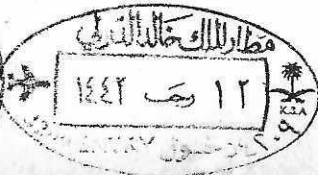 مطار الملك خالد الدولي
١٢ رجب ١٤٤٢
K.S.A